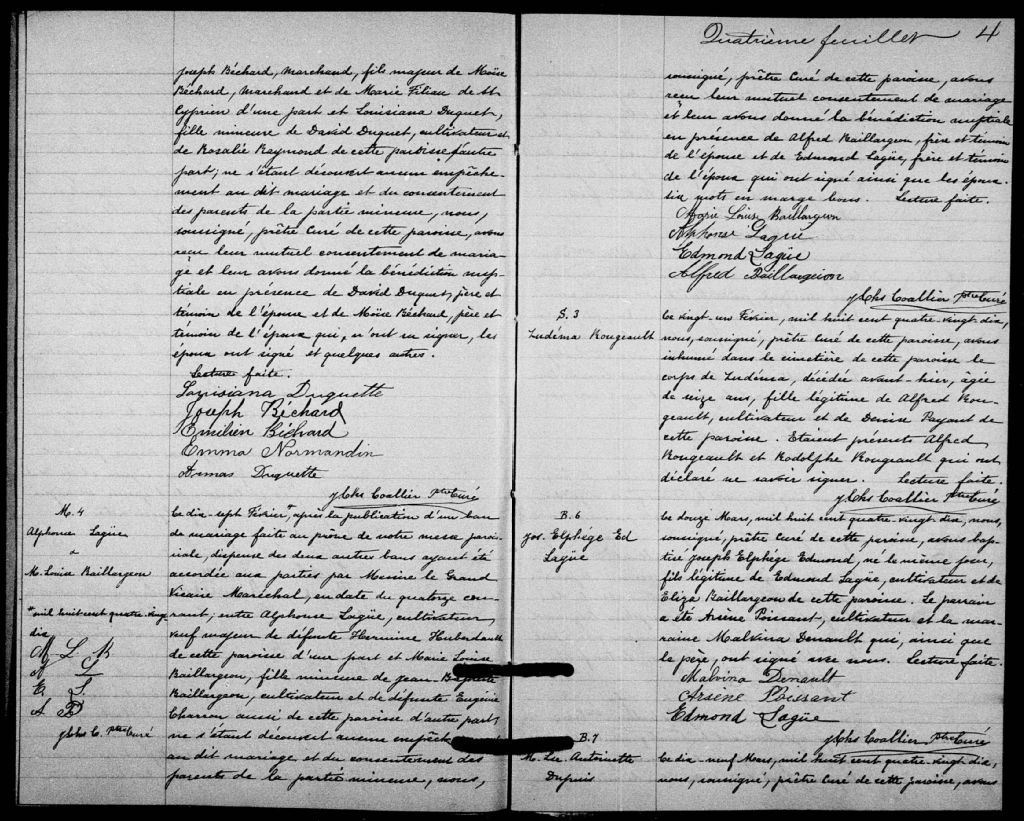 Joseph Béchard, Marchand, fils majeur de Moïse
Béchard, Marchand et de Marie Filian de St
Cyprien d'une part et Louisiana Duguet,
fille mineure de David Duguet, cultivateur et
de Rosalie Raymond de cette paroisse d'autre
part; ne s'étant découvert aucun empêche-
ment au dit mariage et du consentement
des parents de la partie mineure, nous,
soussigné, prêtre Curé de cette paroisse, avons
reçu leur mutuel consentement de maria-
ge et leur avons donné la bénédiction nup-
tiale en présence de David Duguet, père et
témoin de l'épouse et de Moïse Béchard, père et
témoin de l'époux qui, n'ont su signer, les
époux ont signé et quelques autres.
Lecture faite.
Louisiana Duquette
Joseph Béchard
Emilien Béchard
Emma Normandin
Armas Duquette
J Chs Coallier Ptre Curé
M. 4
Alphonse Lagüe
&
M. Louise Baillargeon
* mil huit cent quatre vingt
dix
M L B
A L
E L
A B
J Chs C. Ptre Curé
Le dix-sept Février *, après la publication d'un ban
de mariage faite au prône de notre messe parois-
siale, dispense des deux autres bans ayant été
accordée aux parties par Messire le Grand
Vicaire Maréchal, en date du quatorze cou-
rant, entre Alphonse Lagüe, cultivateur,
veuf majeur de défunte Hermine Huberdault
de cette paroisse d'une part et Marie Louise
Baillargeon, fille mineure de Jean-Baptiste
Baillargeon, cultivateur et de défunte Eugénie
Charron aussi de cette paroisse d'autre part,
ne s'étant découvert aucun empêchement
au dit mariage et du consentement des
parents de la partie mineure, nous,
Quatrième feuillet 4
soussigné, prêtre Curé de cette paroisse, avons
reçu leur mutuel consentement de mariage
et leur avons donné la bénédiction nuptiale
en présence de Alfred Baillargeon, frère et témoin
de l'épouse et de Edmond Lagüe, frère et témoin
de l'époux qui ont signé ainsi que les époux.
Six mots en marge bons. Lecture faite.
Marie Louise Baillargeon
Alphonse Lagüe
Edmond Lagüe
Alfred Baillargeion
J Chs Coallier Ptre Curé
S. 3
Ludéma Rougeault
Le vingt-un Février, mil huit cent quatre-vingt-dix,
nous, soussigné, prêtre Curé de cette paroisse, avons
inhumé dans le cimetière de cette paroisse le
corps de Ludéma, décédée avant-hier, âgée
de seize ans, fille légitime de Alfred Rou-
geault, cultivateur et de Denise Payant de
cette paroisse. Etaient présents Alfred
Rougeault et Rodolphe Rougeault qui ont
déclaré ne savoir signer. Lecture faite.
J Chs Coallier Ptre Curé
B. 6
Jos. Elphége Ed
Lagüe
Le douze Mars, mil huit cent quatre-vingt-dix, nous,
soussigné, prêtre Curé de cette paroisse, avons bap-
tisé Joseph Elphége Edmond, né le même jour,
fils légitime de Edmond Lagüe, cultivateur et de
Eliza Baillargeon de cette paroisse. Le parrain
a été Arsène Poissant, cultivateur et la mar-
raine Malvina Denault qui, ainsi que
le père, ont signé avec nous. Lecture faite.
Malvina Denault
Arsène Poissant
Edmond Lagüe
J Chs Coallier Ptre Curé
B. 7
M. Antoinette
Dupuis
Le dix-neuf Mars, mil huit cent quatre-vingt-dix,
nous, soussigné, prêtre Curé de cette paroisse, avons